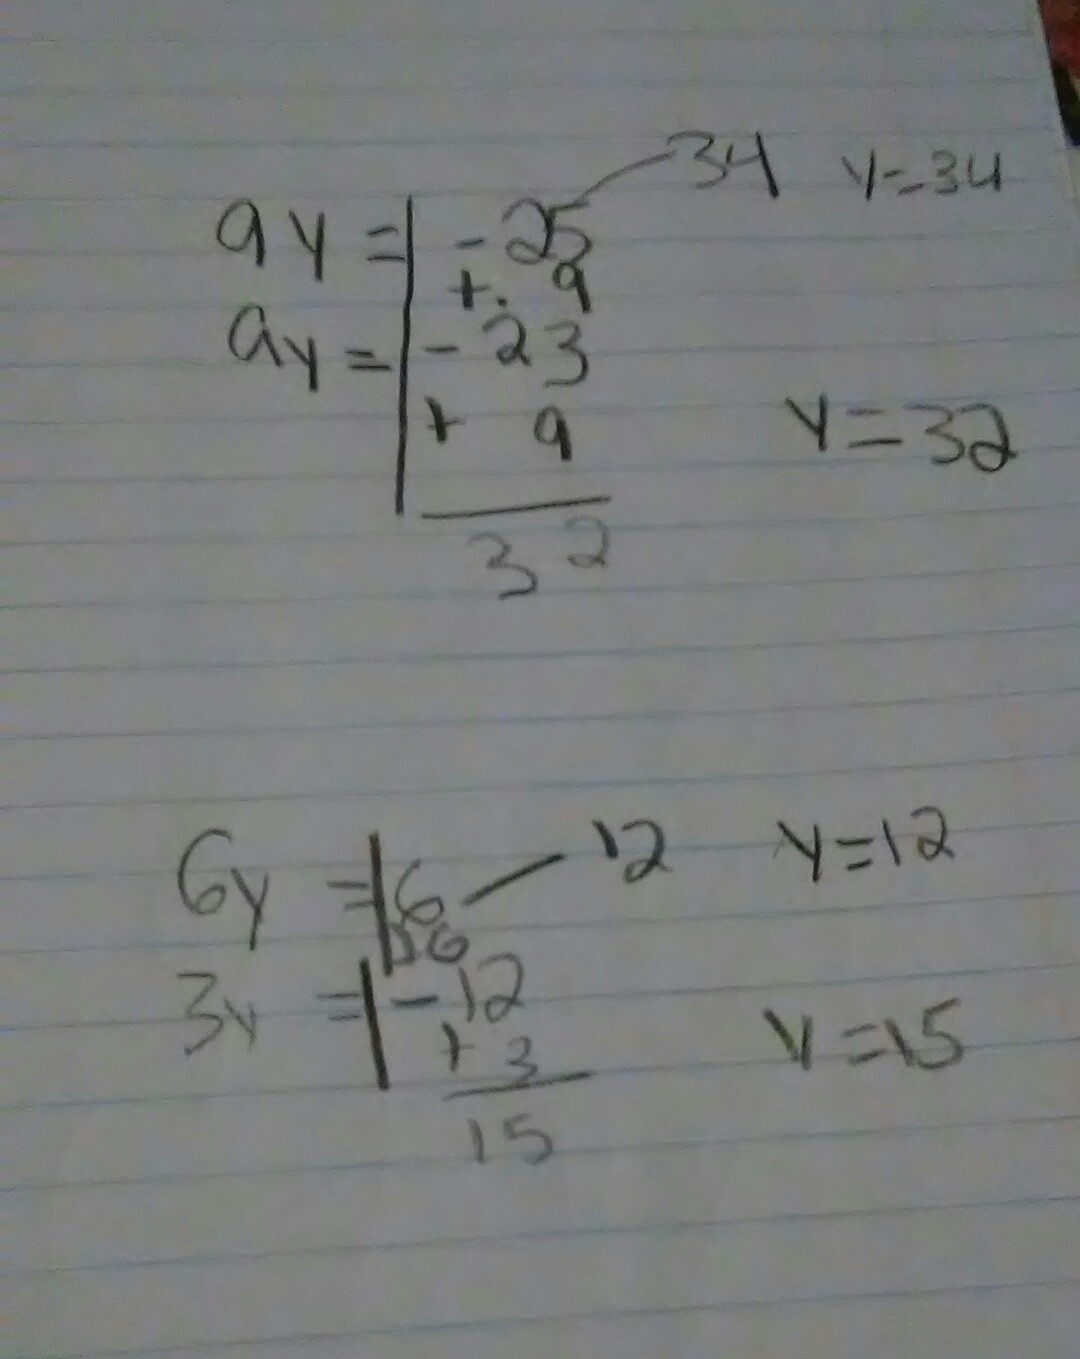 9y = -25 34 y=34
+. 9
9y = -23
+ 9 y=32
32
6y = 6 12 y=12
+6
3y = -12
+ 3 y=15
15